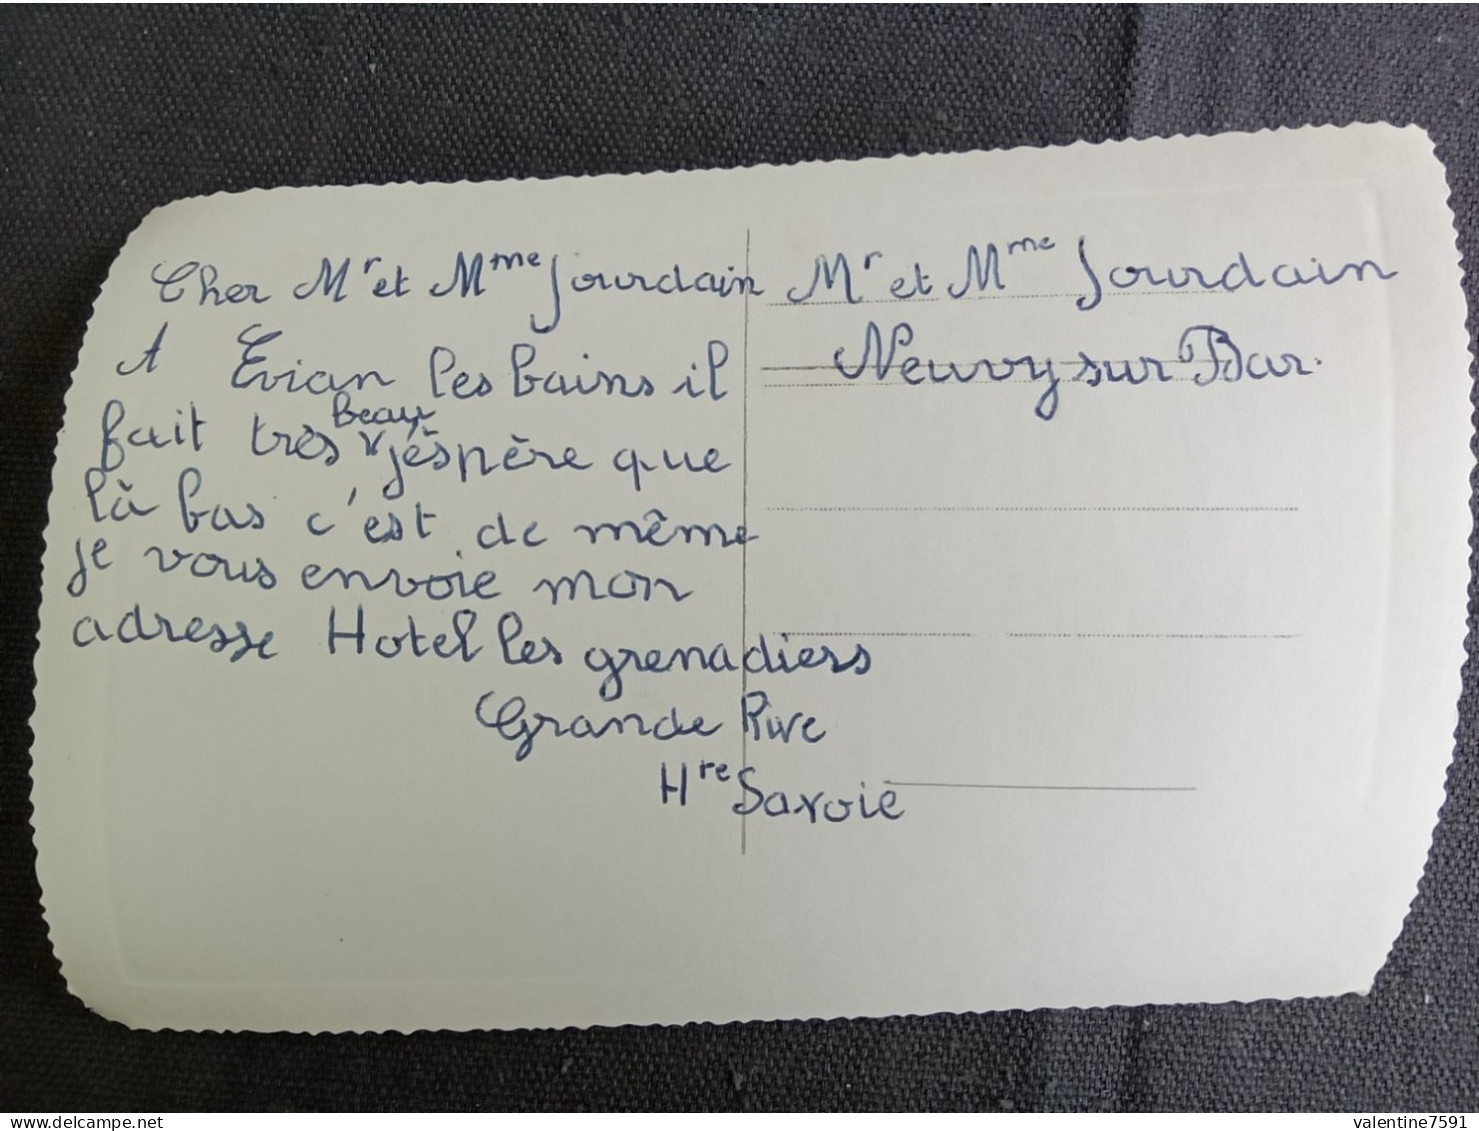 Cher Mr et Mme Jourdain
A Evian les bains il
fait très beau j'éspère que
là bas c'est de même
je vous envoie mon
adresse Hotel les grenadiers
Grande Rive
Hre Savoie
Mr et Mme Jourdain
Neuvy sur Bar.
valentine7591